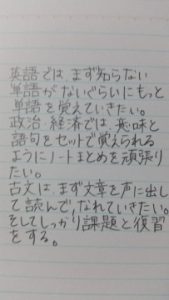 英語では、まず知らない
単語がないぐらいにもっと
単語を覚えていきたい。
政治・経済では、意味と
語句をセットで覚えられる
ようにノートまとめを頑張り
たい。
古文は、まず文章を声に出し
て読んで、なれていきたい。
そしてしっかり課題と復習
をする。